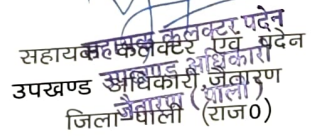 सहायक कलक्टर एवं पदेन
उपखण्ड अधिकारी, जैतारण
जिला-पाली (राज0)
सहायक कलक्टर पदेन
उपखण्ड अधिकारी
जैतारण (पाली)